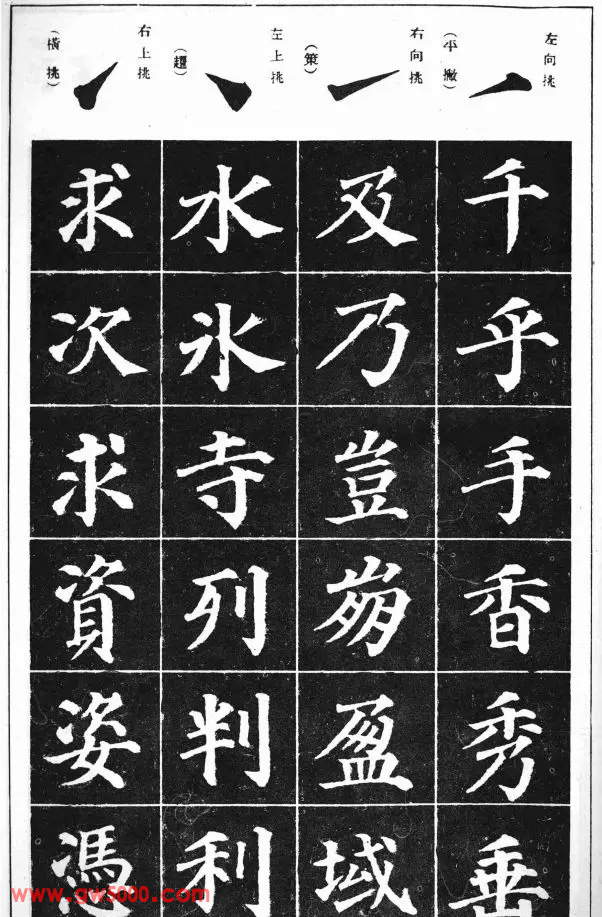 左向挑
(平撇)
千乎手香秀垂
右向挑
(策)
及乃豈崩盈域
左上挑
(趯)
水氷寺列判利
右上挑
(橫挑)
求次求資姿馮
www.gw5000.com